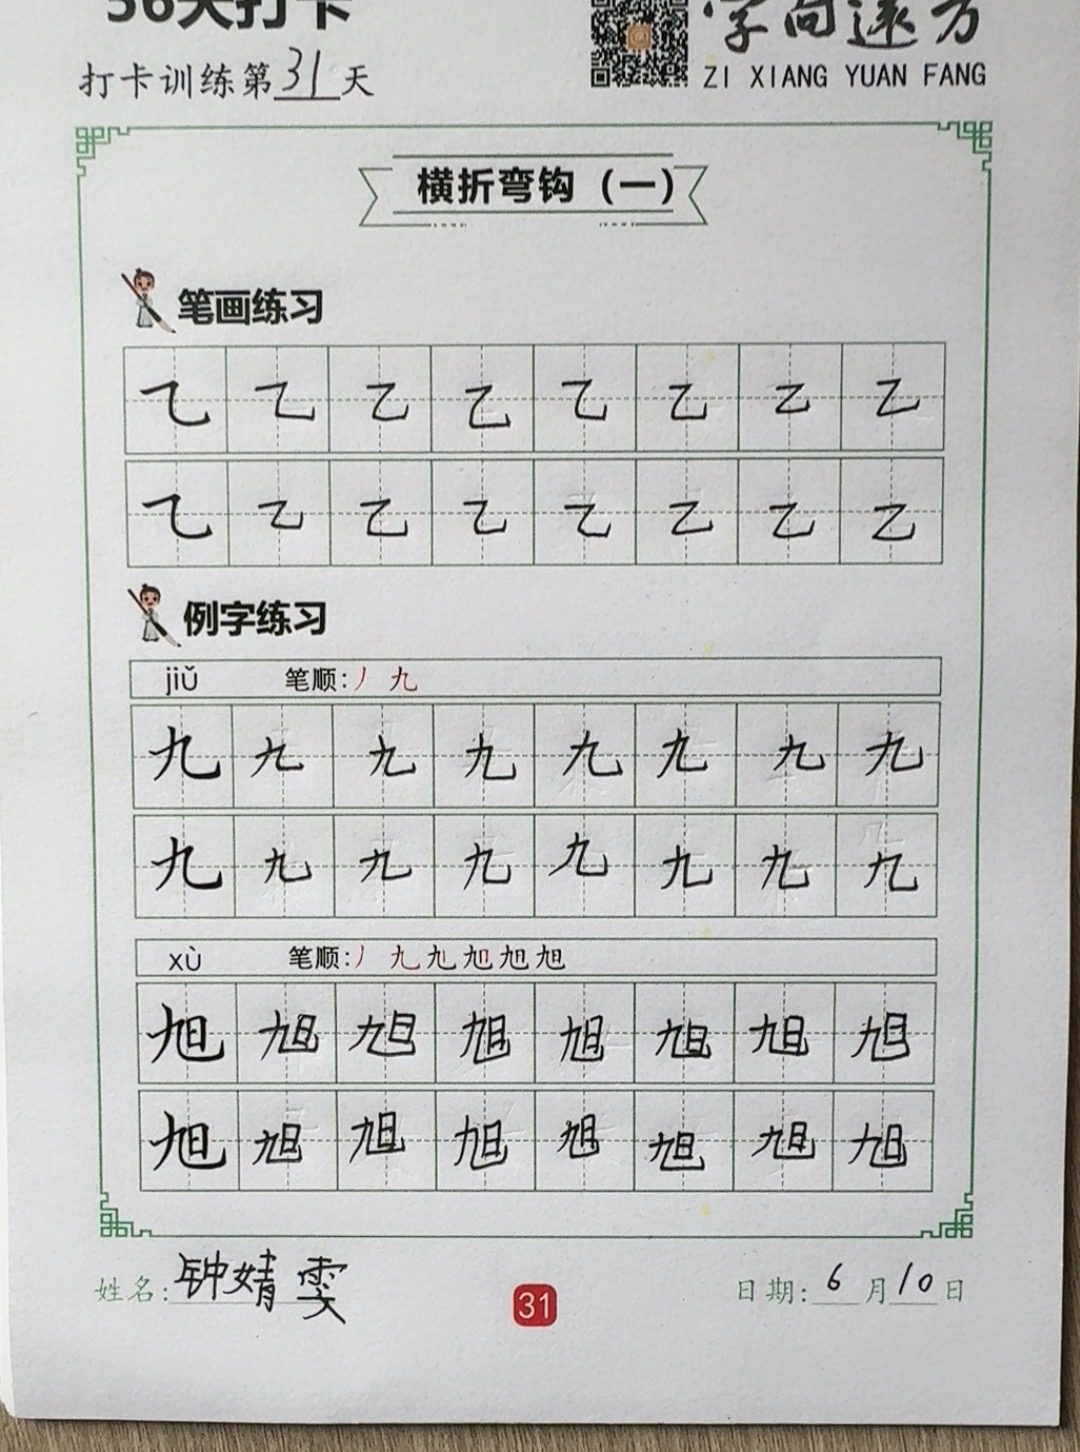 36天打卡
字向远方
打卡训练第31天
ZI XIANG YUAN FANG
横折弯钩（一）
笔画练习
乙 乙 乙 乙 乙 乙 乙 乙
乙 乙 乙 乙 乙 乙 乙 乙
例字练习
jiǔ 笔顺:丿 九
九 九 九 九 九 九 九 九
九 九 九 九 九 九 九 九
xù 笔顺:丿 九 九 旭 旭 旭
旭 旭 旭 旭 旭 旭 旭 旭
旭 旭 旭 旭 旭 旭 旭 旭
姓名:钟婧雯
31
日期:6月10日